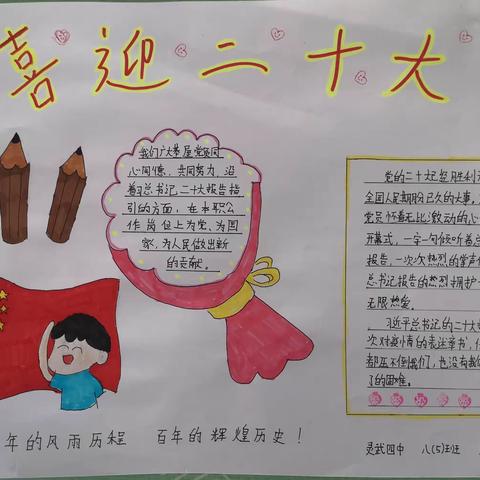 喜迎二十大
我们广大基层党员同
心同德，共同努力，沿
着习总书记二十大报告指
引的方面，在本职公
作岗位上为党、为国
家，为人民做出新
的贡献。
党的二十大已经胜利
全国人民期盼已久的大事，
党员怀着无比激动的心
开幕式，一字一句倾听着总
报告，一次次热烈的掌声
总书记报告的热烈拥护
无限热爱。
习近平总书记的二十大
次对疫情的表述掌书，
都压不倒我们，也没有
了的困难。
年的风雨历程 百年的辉煌历史！
灵武四中 八(5)班